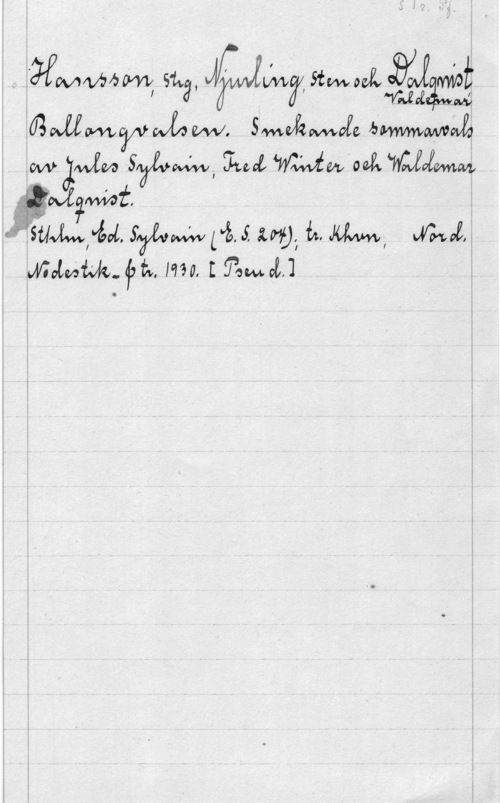 Str. Sf.
Hansson, Stig, Njurling, Sten och Dalqvist
Valdemar
Ballongvalsen. Smekande sommarvals
av Jules Sylvain, Fred Winter och Waldemar
Dalqvist.
Sthlm, Ed. Sylvain (E. S. 204), tr. Khvn, Nord.
Nodestik- & tr. 1930. [Pseud.]